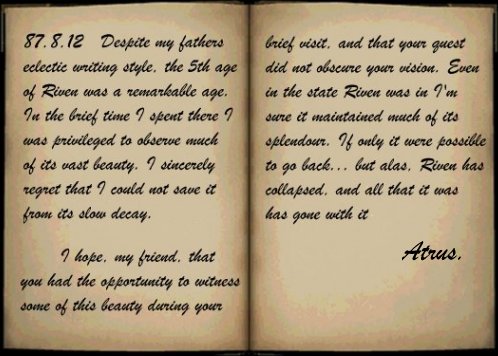 87.8.12 Despite my fathers
eclectic writing style, the 5th age
of Riven was a remarkable age.
In the brief time I spent there I
was privileged to observe much
of its vast beauty. I sincerely
regret that I could not save it
from its slow decay.
I hope, my friend, that
you had the opportunity to witness
some of this beauty during your
brief visit, and that your quest
did not obscure your vision. Even
in the state Riven was in I'm
sure it maintained much of its
splendour. If only it were possible
to go back... but alas, Riven has
collapsed, and all that it was
has gone with it
Atrus.